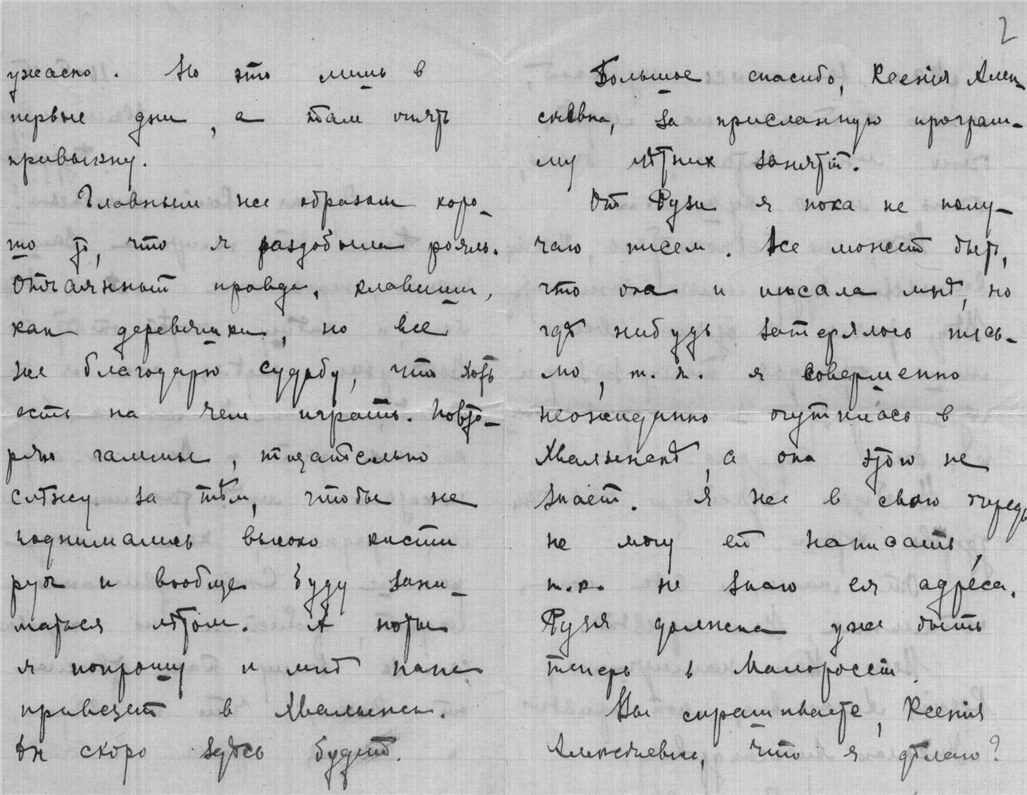 ужасно. Но это лишь в
первые дни, а там опять
привыкну.
Главным же образом хоро-
то, что я раздобыла рояль.
Отчаянный правда, клавиши,
как деревяшки, но все
же благодарю судьбу, что хоть
есть на чем играть. Повто-
ряю гаммы, тщательно
слежу за тѣм, чтобы не
поднимались высоко кисти
рук и вообще буду зани-
маться лѣтом. А ноты
я попрошу и мнѣ папа
привезет в Хвалынск.
Он скоро здѣсь будет.
2
Большое спасибо, Ксенія Алек-
сѣевна, за присланную програм-
му лѣтних занятій.
От Рузи я пока не полу-
чаю писем. Все может быть,
что она и писала мнѣ но
гдѣ нибудь затерялось пись-
мо, т.к. я совершенно
неожиданно очутилась в
Хвалынскѣ, а она этого не
знает. Я же в свою очередь
не могу ей написать,
т.к. не знаю ея адреса.
Рузя должна уже быть
теперь в Малороссіи.
Вы спрашиваете, Ксенія
Алексѣевна, что я дѣлаю?